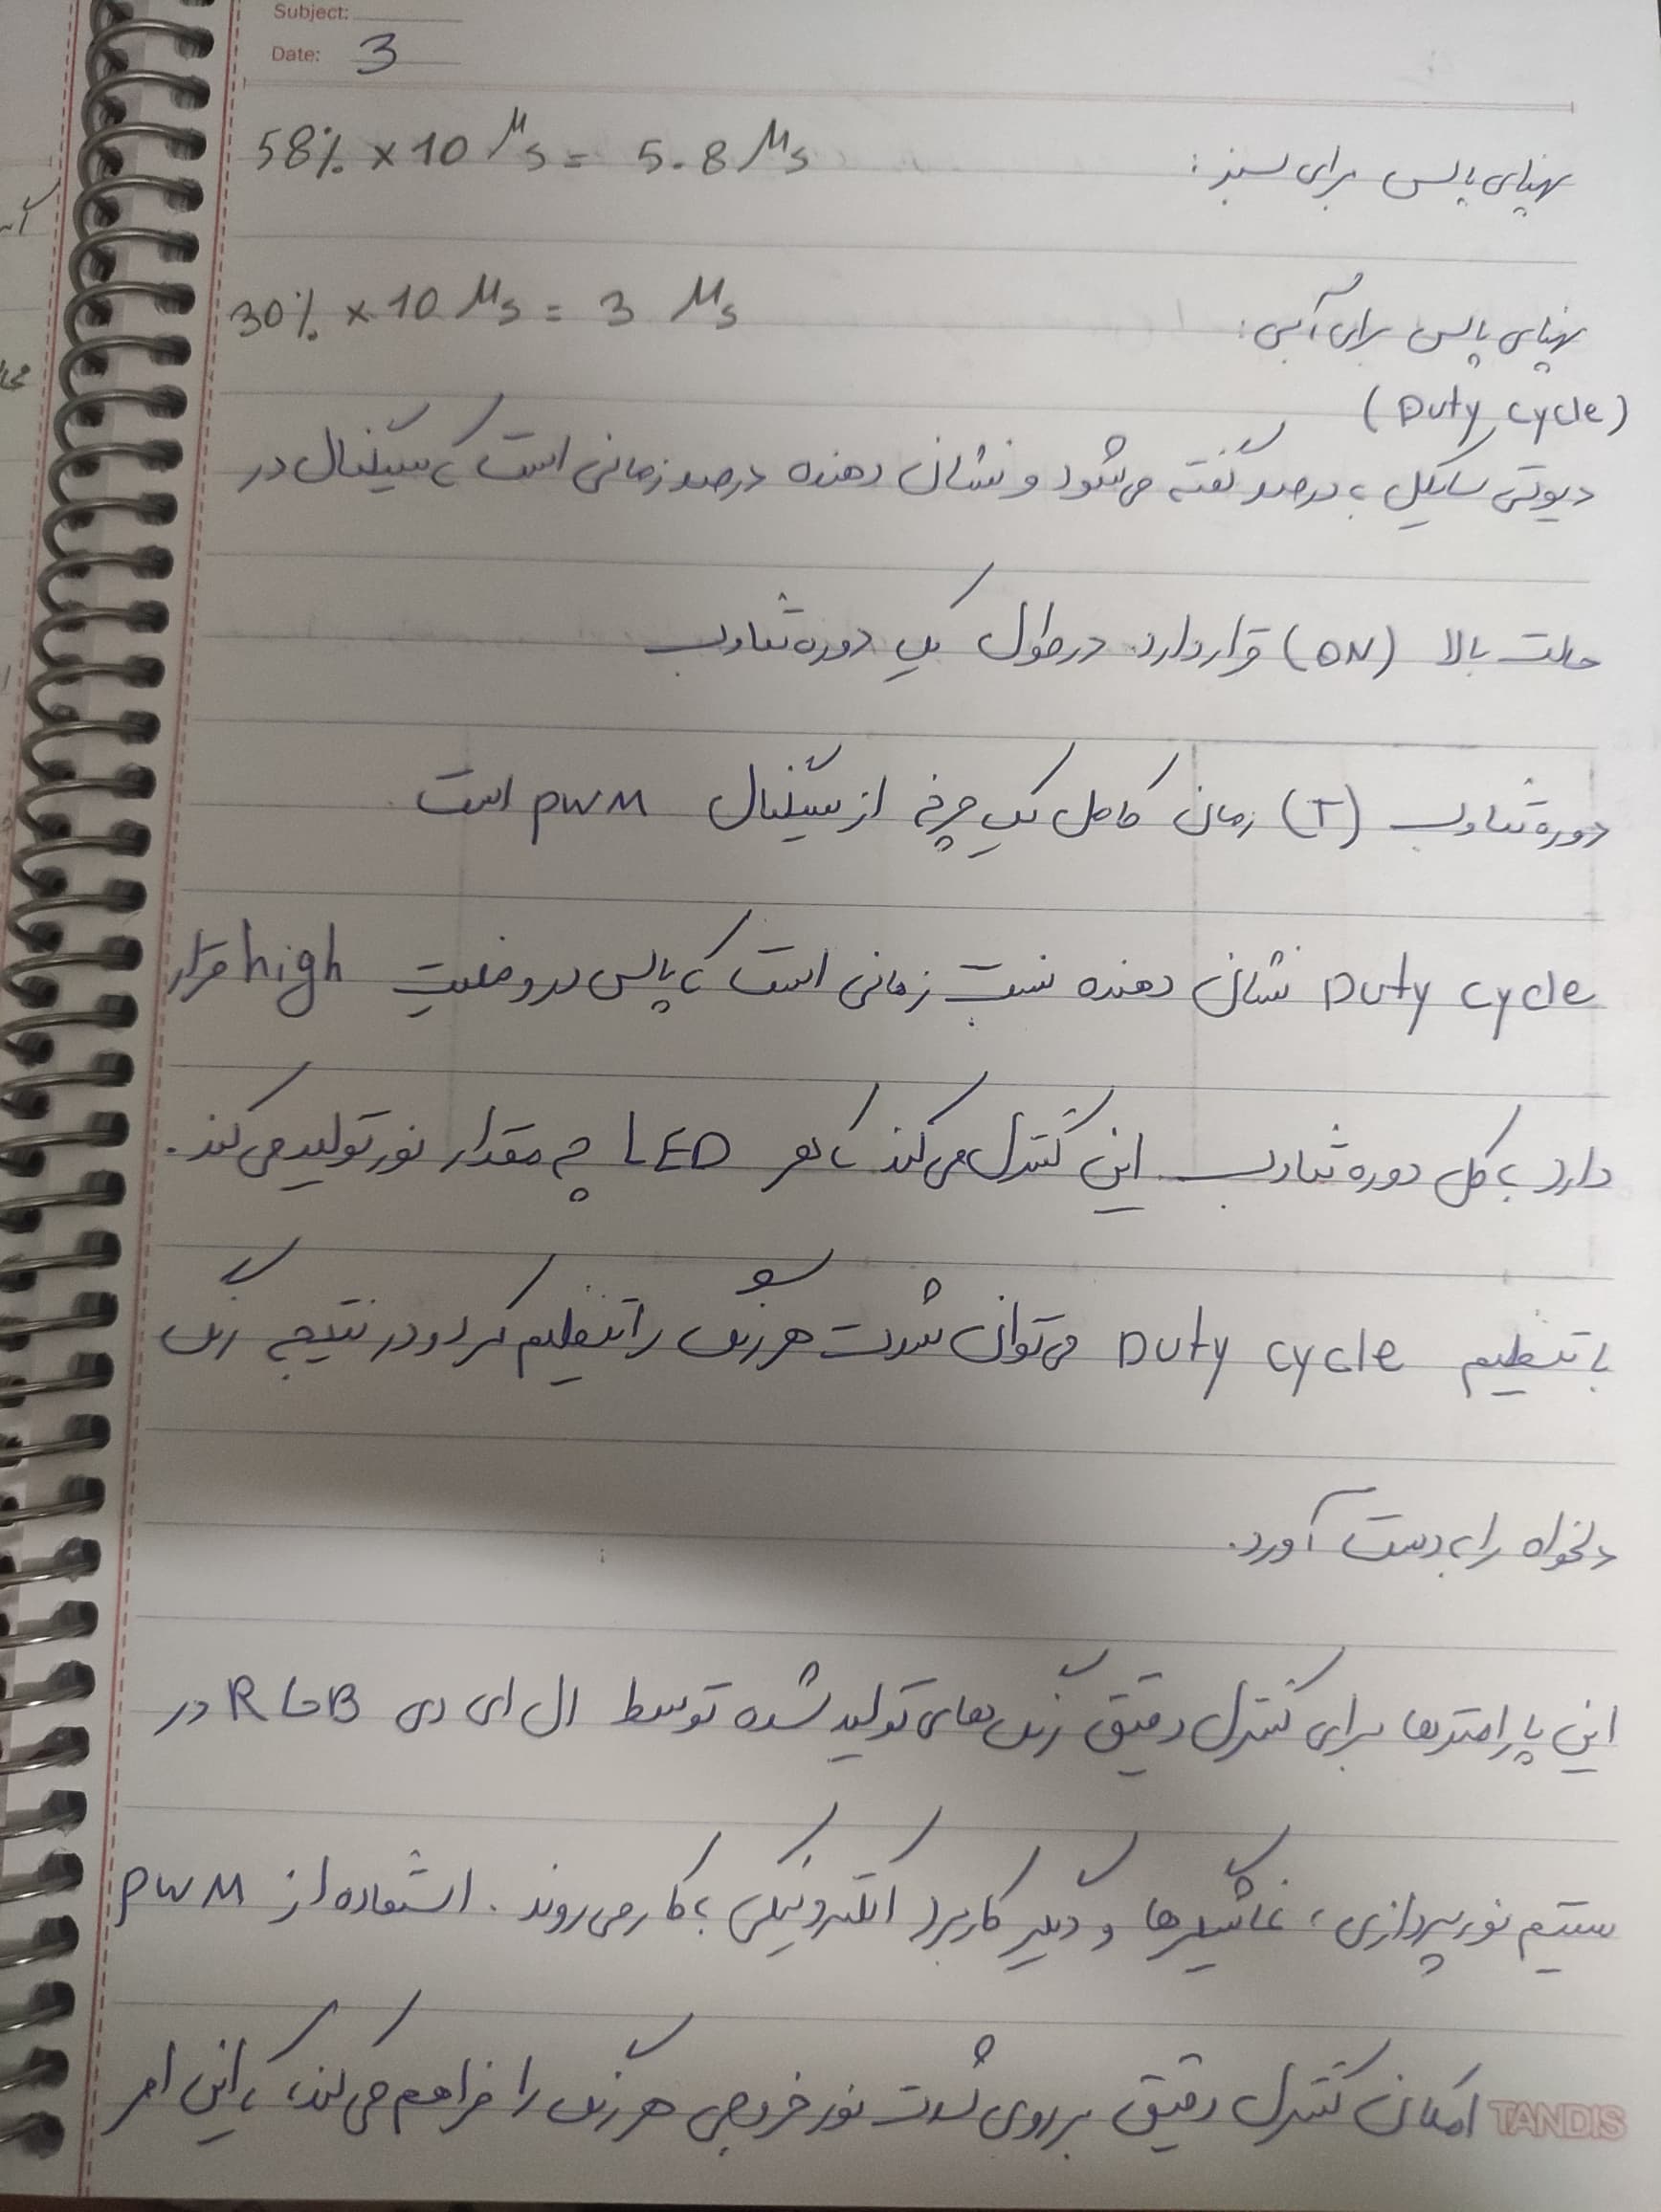 Subject:
Date: 3
پهنای پالس برای سبز: 58% × 10 μs = 5.8 μs
پهنای پالس برای آبی: 30% × 10 μs = 3 μs
(Duty cycle)
دیوتی سایکل به درصد گفته می‌شود و نشان دهنده درصد زمانی است که سیگنال در
حالت بالا (ON) قرار دارد در طول یک دوره تناوب
دوره تناوب (T) زمان کامل یک چرخه از سیگنال PWM است
Duty cycle نشان دهنده نسبت زمانی است که پالس در وضعیت high قرار
دارد به کل دوره تناوب. این کنترل می‌کند که هر LED چه مقدار نور تولید می‌کند.
با تنظیم Duty cycle می‌توان شدت نور هر رنگ را تنظیم کرد و در نتیجه رنگ
دلخواه را به دست آورد.
این پارامترها برای کنترل دقیق رنگ‌های تولید شده توسط ال ای دی RGB در
سیستم نورپردازی، نمایشگرها و دیگر کاربرد الکترونیکی به کار می‌روند. استفاده از PWM
امکان کنترل دقیق بر روی شدت نور خروجی هر رنگ را فراهم می‌کند، که این امر
TANDIS